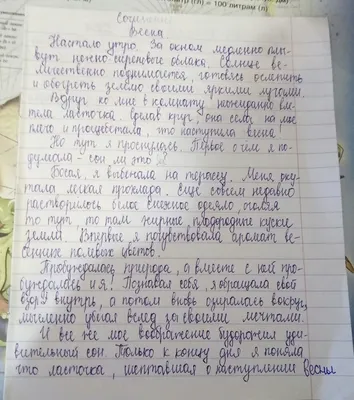 100 литрам (л)
Сочинение
Весна
Настало утро. За окном медленно плы-
вут нежно-сиреневые облака. Солнце ве-
личественно поднимается, готовясь осветить
и обогреть землю своими яркими лучами.
Вдруг ко мне в комнату неожиданно вле-
тела ласточка. Сделав круг, она села на мое
плечо и прощебетала, что наступила весна!
Но тут я проснулась. Первое о чем я по-
думала - сон ли это?
Босая, я выбежала на террасу. Меня оку-
тала легкая прохлада. Еще совсем недавно
растворилось белое снежное одеяло, оголяя
то тут, то там жирные, плодородные куски
земли. Впервые я почувствовала аромат ве-
сенних полевых цветов.
Пробуждалась природа, а вместе с ней про-
буждалась и я! Познавая себя, я обращала свой
взор внутрь, а потом вновь озиралась вокруг,
мысленно убегая вслед за своими мечтами.
И все же мое воображение будоражил уди-
вительный сон. Только к концу дня я поняла
что ласточка, шептавшая о наступлении весны